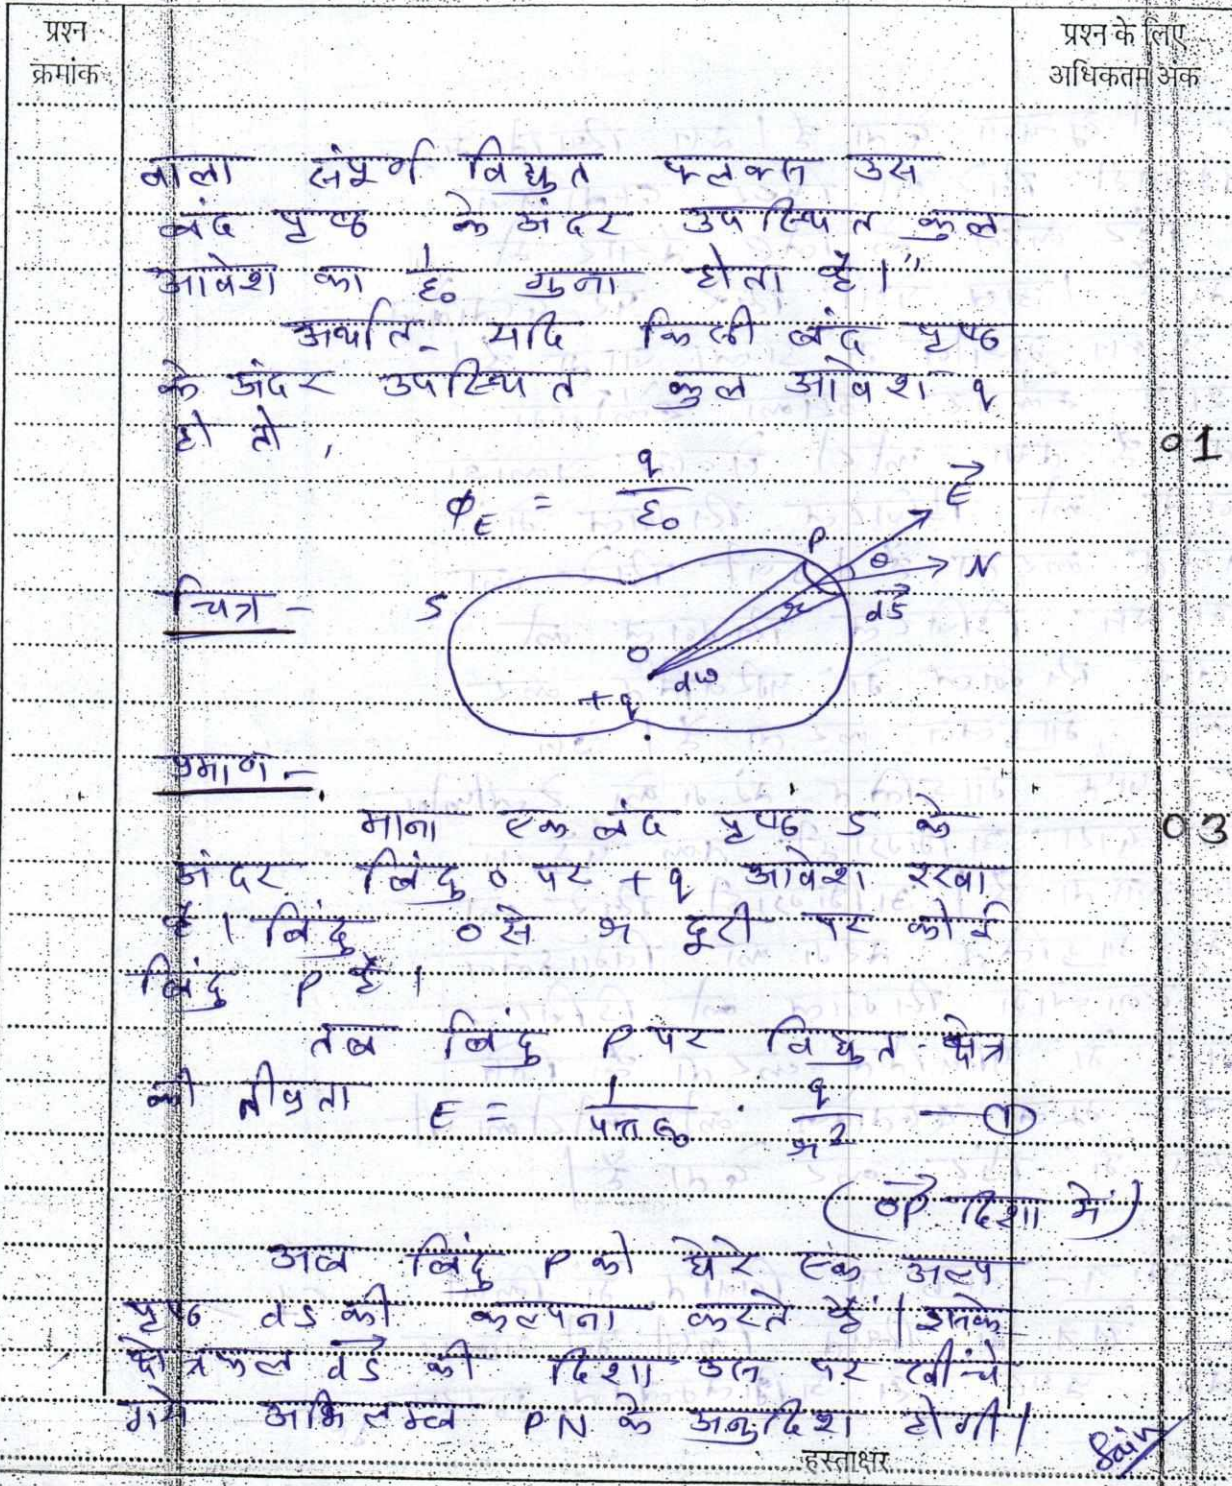 प्रश्न
क्रमांक
प्रश्न के लिए
अधिकतम अंक
वाला संपूर्ण विद्युत फ्लक्स उस
बंद पृष्ठ के अंदर उपस्थित कुल
आवेश का 1/ε₀ गुना होता है।"
अर्थात- यदि किसी बंद पृष्ठ
के अंदर उपस्थित कुल आवेश q
हो तो,
01
ϕE = q/ε₀
E⃗
P
θ
N
चित्र -
S
r
dS⃗
O
dω
+q
प्रमाण -
माना एक बंद पृष्ठ S के
03
अंदर बिंदु O पर +q आवेश रखा
है। बिंदु O से r दूरी पर कोई
बिंदु P है।
तब बिंदु P पर विद्युत क्षेत्र
की तीव्रता E = 1/4πε₀ . q/r² —①
(OP⃗ दिशा में)
अब बिंदु P को घेरे एक अल्प
पृष्ठ dS की कल्पना करते हैं। इसके
क्षेत्रफल dS⃗ की दिशा उस पर खींचे
गये अभिलम्ब PN के अनुदिश होगी।
हस्ताक्षर